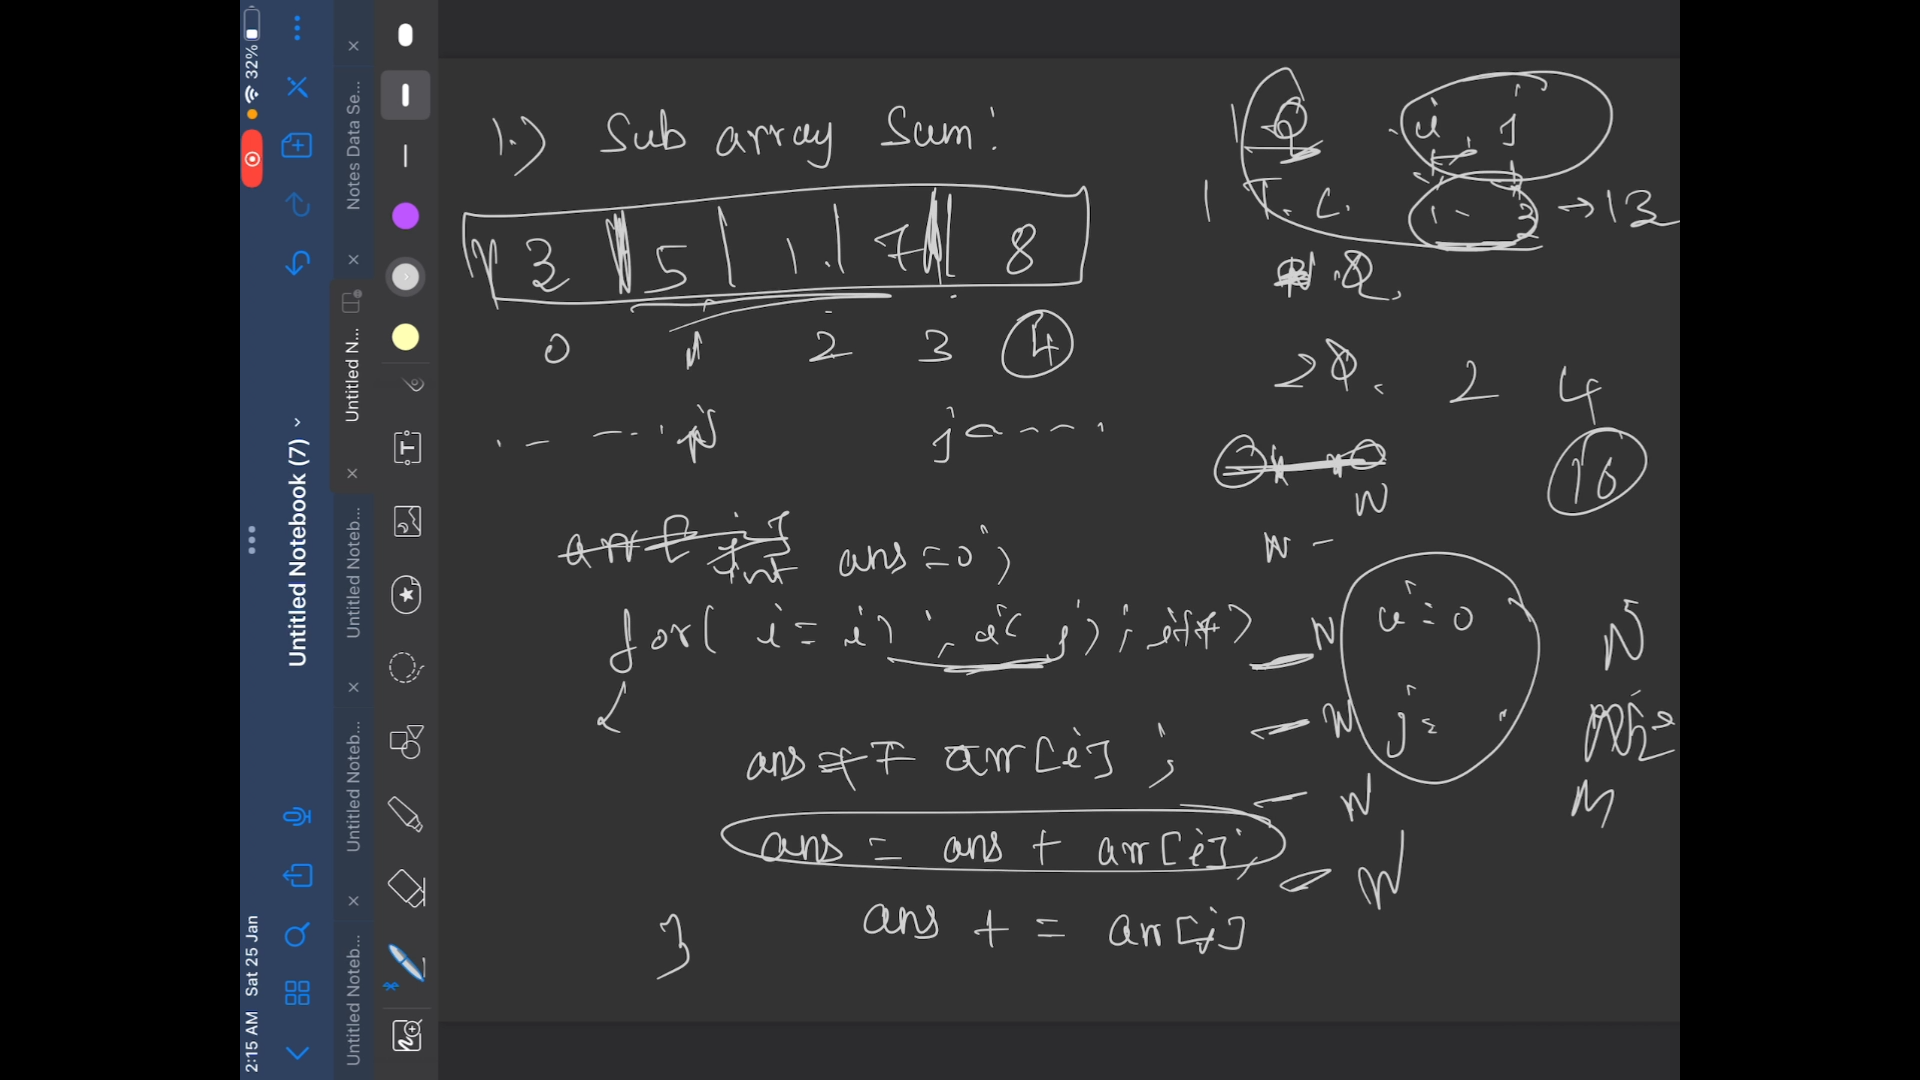 2:15 AM Sat 25 Jan
32%
Untitled Notebook (7)
Notes Data Se...
Untitled N...
Untitled Noteb...
Untitled Noteb...
Untitled Noteb...
1.) Sub array Sum:
3 5 1 7 8
0 1 2 3 4
i j
int ans = 0;
for( i = i ; i < j ; i++)
{
ans =+ arr[i] ;
ans = ans + arr[i];
ans += arr[i]
}
1 Q i, j
1 T.C. 1 - 3 → 13
Q.
2Q. 2 4
16
N
N -
N
N
N
N
i = 0
j =
N